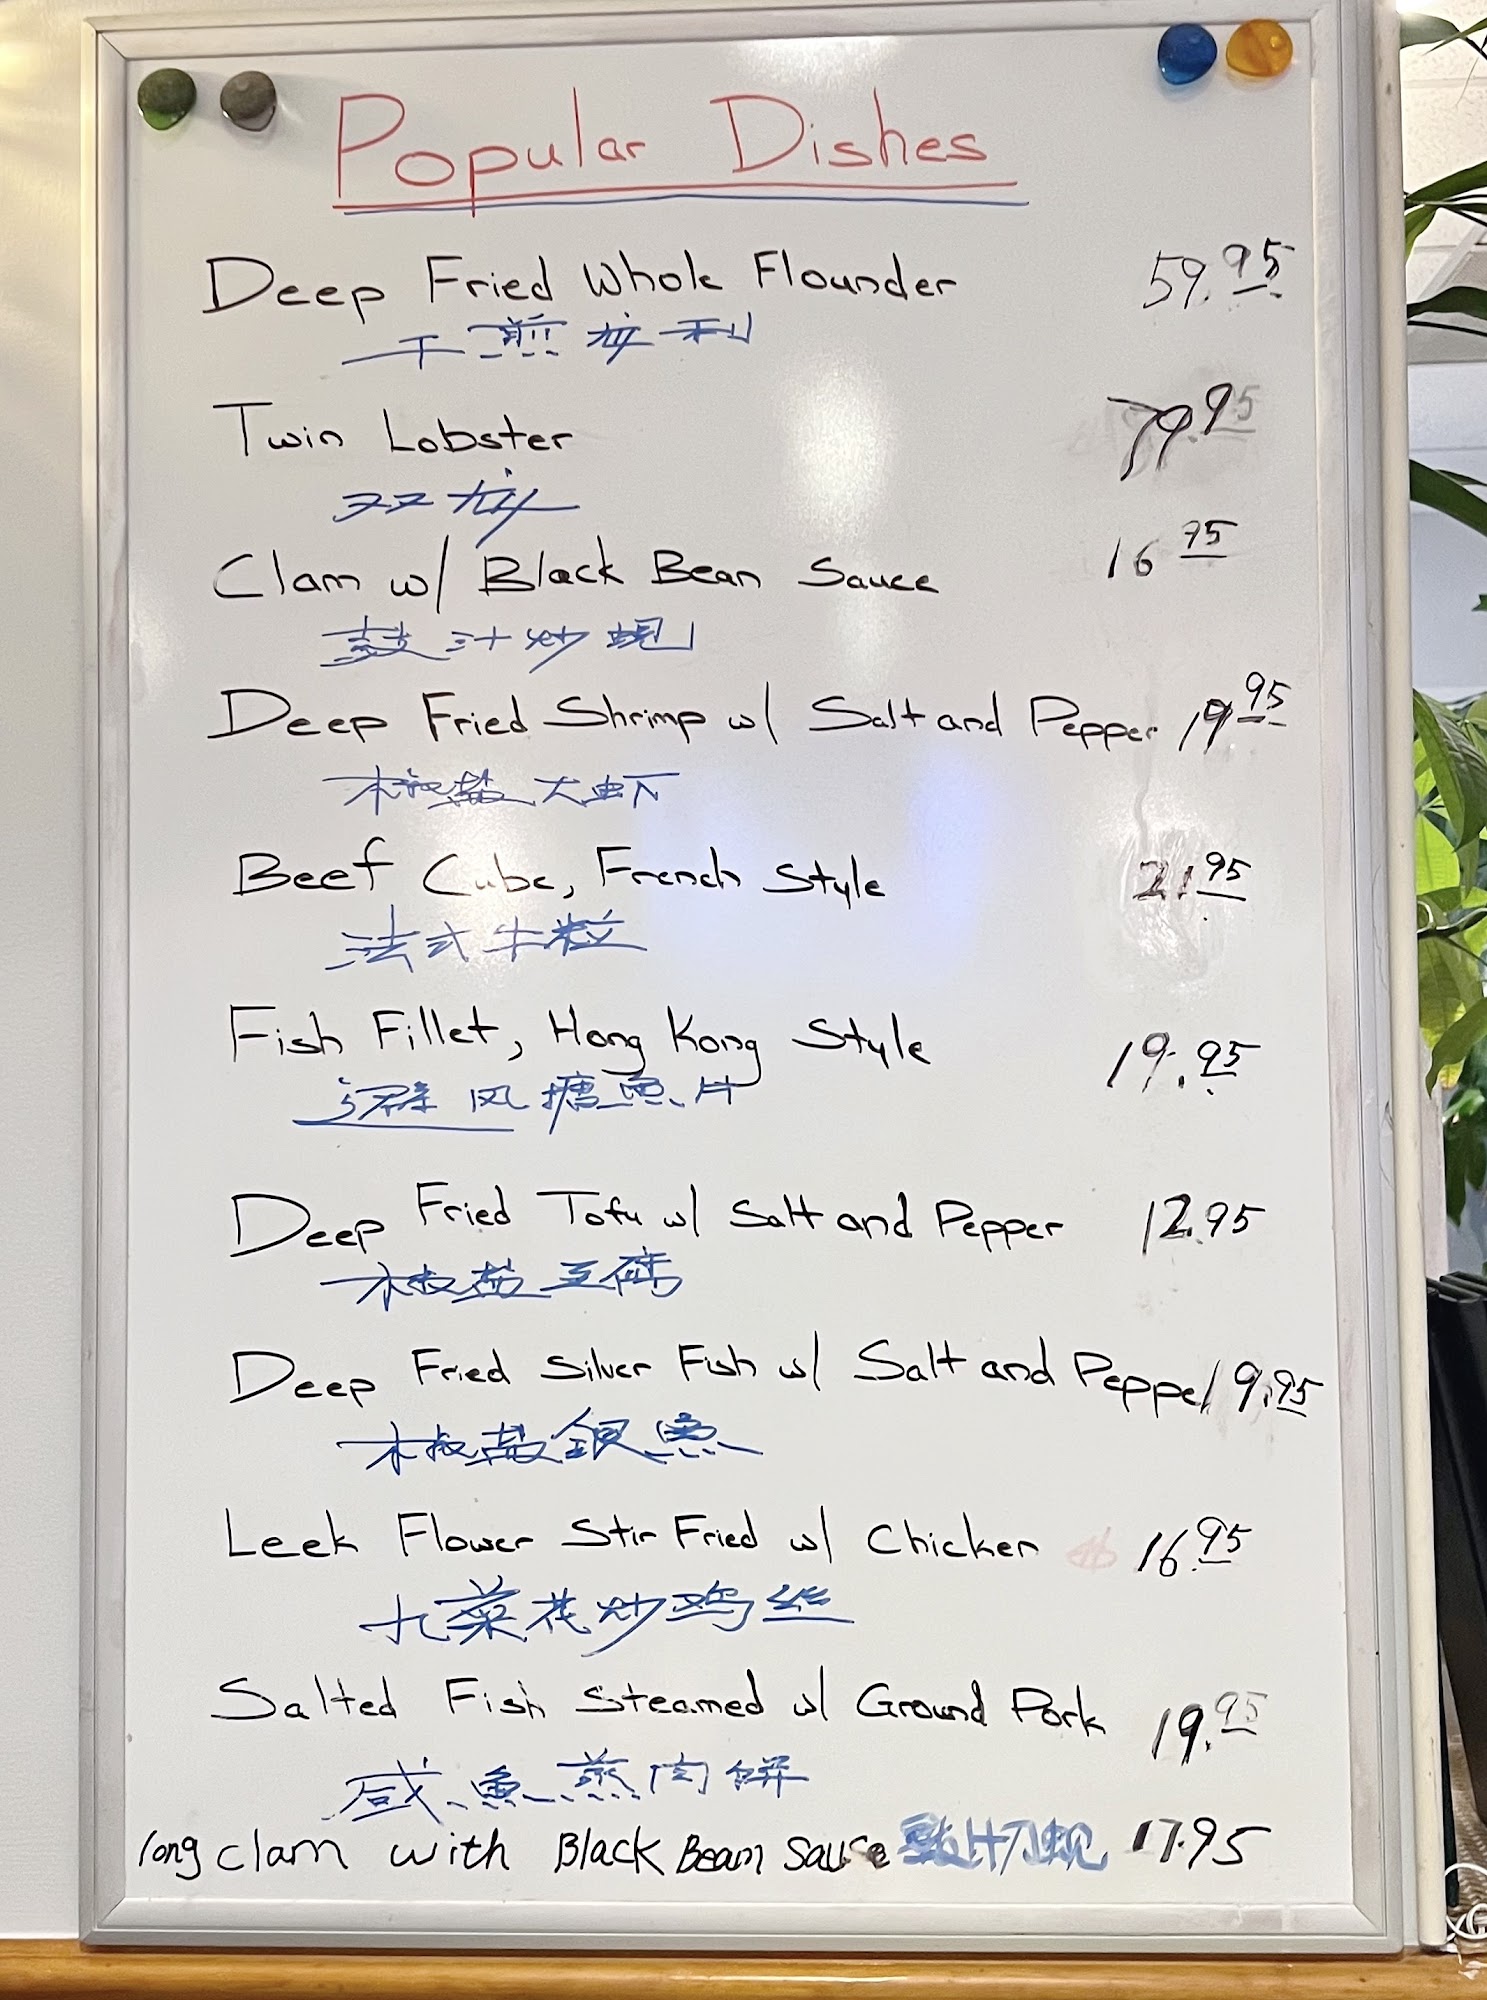 Popular Dishes
Deep Fried Whole Flounder 59.95
干煎龙利
Twin Lobster 79.95
双龙
Clam w/ Black Bean Sauce 16 95
鼓汁炒蚬
Deep Fried Shrimp w/ Salt and Pepper 19 95
椒盐大虾
Beef Cube, French Style 21.95
法式牛粒
Fish Fillet, Hong Kong Style 19.95
避风塘鱼片
Deep Fried Tofu w/ Salt and Pepper 12.95
椒盐豆腐
Deep Fried Silver Fish w/ Salt and Pepper 9.95
椒盐银鱼
Leek Flower Stir Fried w/ Chicken 16.95
九菜花炒鸡丝
Salted Fish Steamed w/ Ground Pork 19.95
咸鱼蒸肉饼
long clam with Black Bean Sause 鼓汁刀蚬 17.95